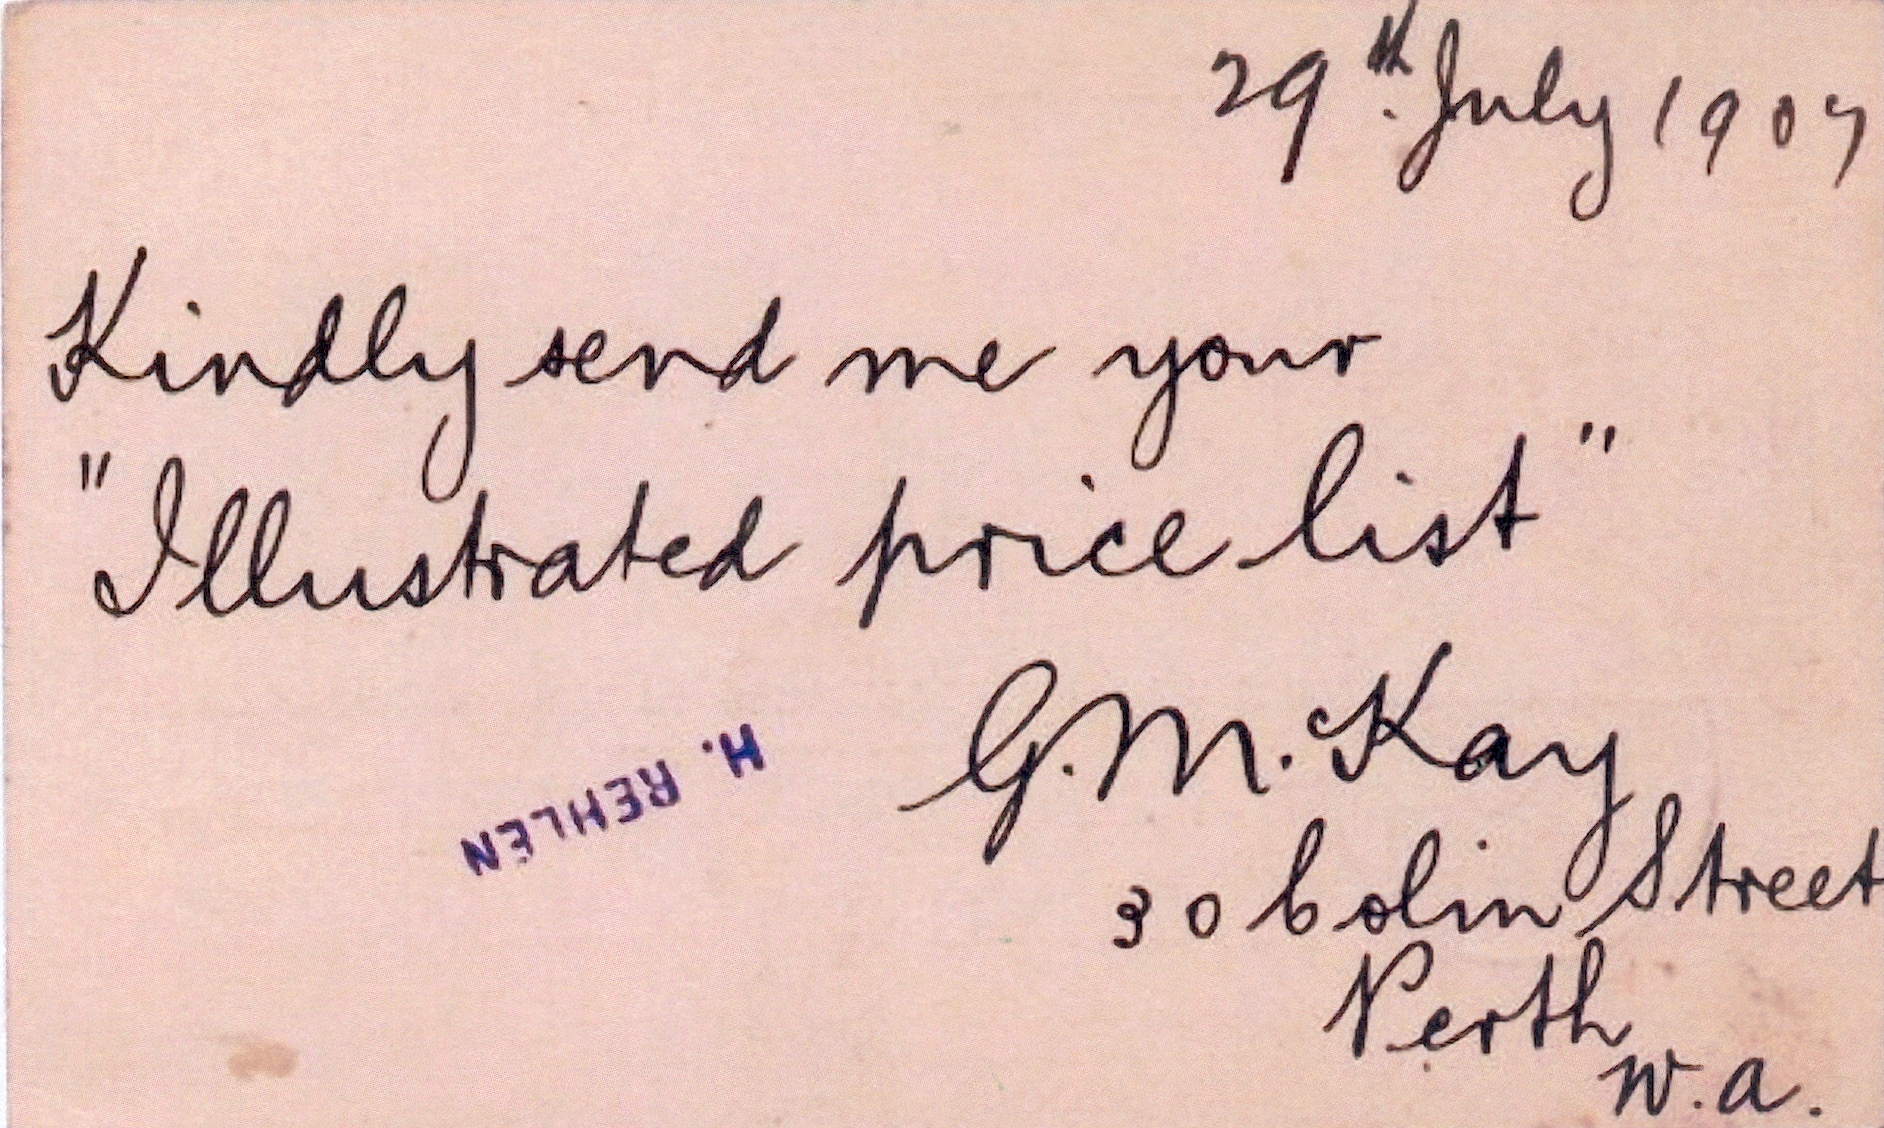 29th. July 1907
Kindly send me your
"Illustrated price list"
G. McKay
H. REHLEN
30 Colin Street
Perth
W.A.